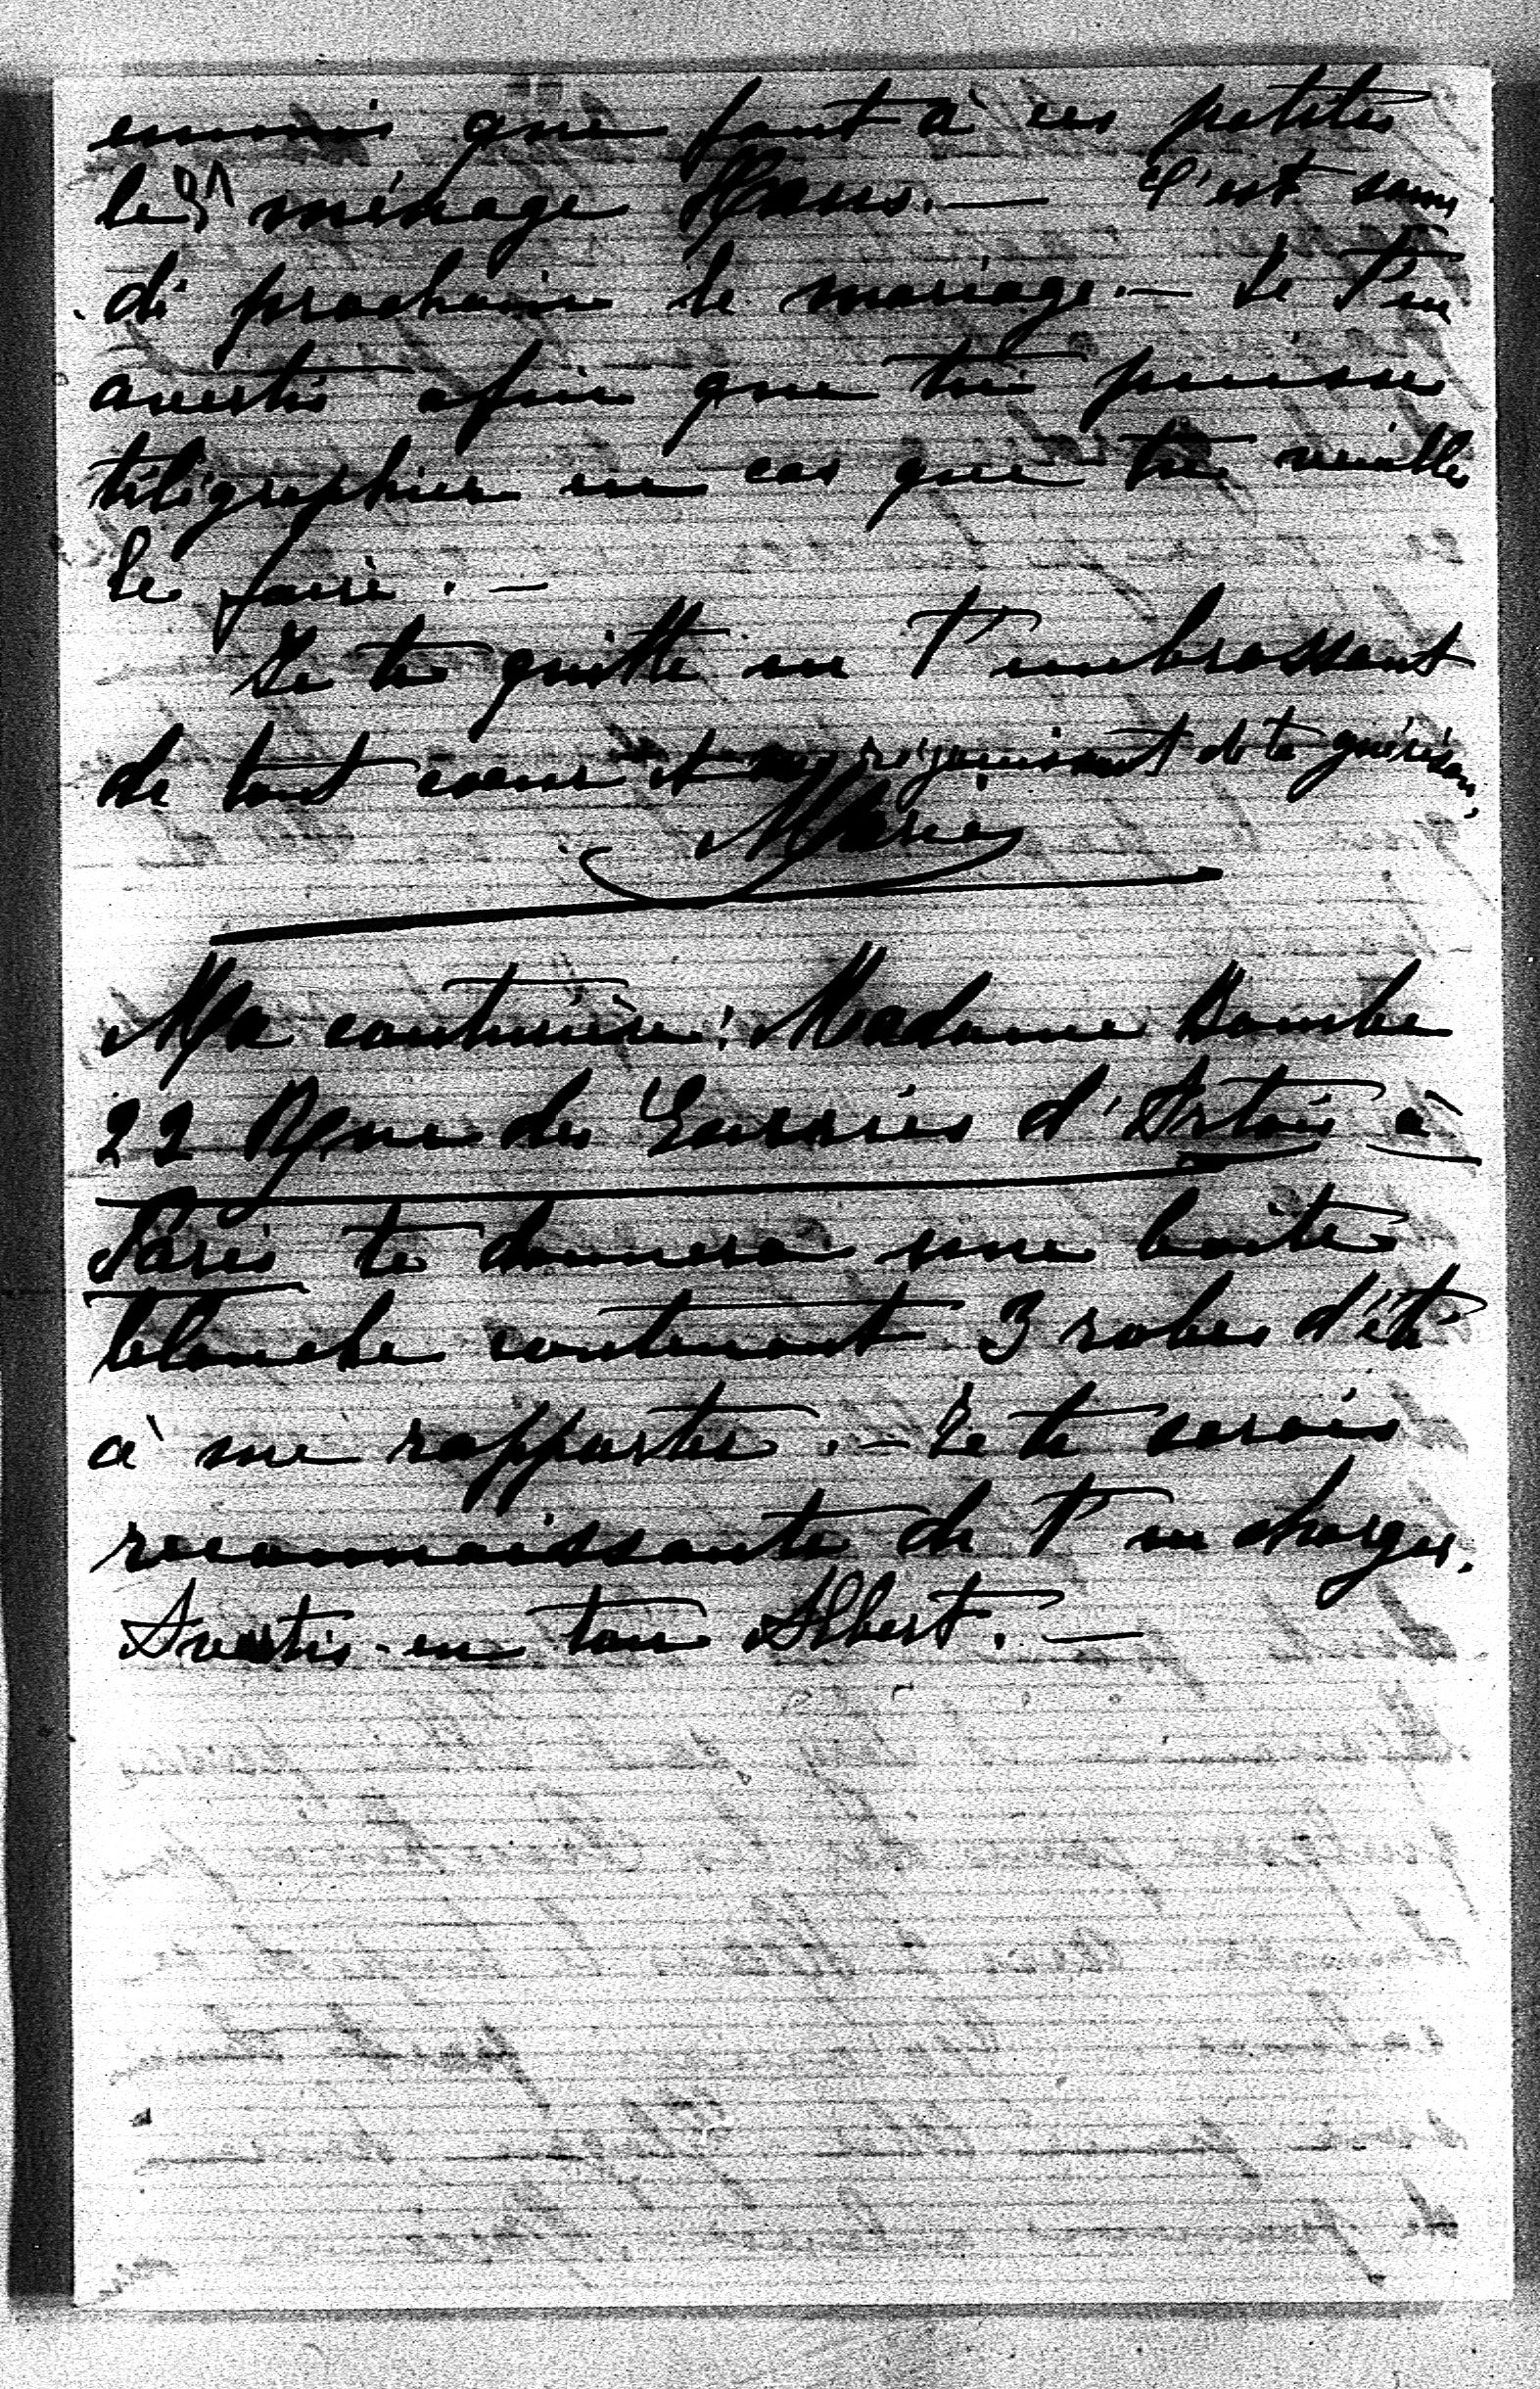 ennuis que font à ces petites
le ménage Hans. — C'est same
di prochain le mariage. — Je t'en
avertis afin que tu puisses
télégraphier en cas que tu veuilles
le faire. —
Je te quitte en t'embrassant
de tout coeur et me réjouissant de ta guérison,
Marie
Ma couturière: Madame Dombe
22 Rue des Ecuries d'Artois à
Paris te donnera une boîte
blanche contenant 3 robes d'été
à me rapporter. — Je te serais
reconnaissante de t'en charger.
Avertis-en ton Albert. —